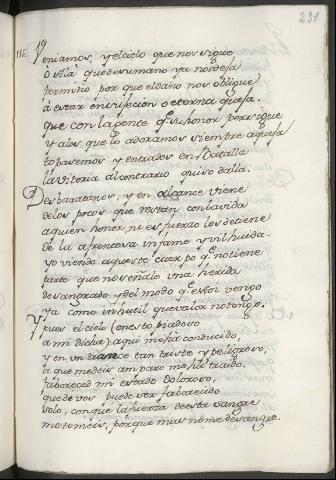 231
115.
Veniamos, y el cielo que nos sigue
o vilà que desumano ya nos dexa
permitio por que el daño nos oblique
à estar en opresion o eterna quexa.
que con la gente q̃ su honor persigue
y a los que lo adoramos siempre aquexa
topasemos y entrados en Batalla
la vitoria al contrario quiso dalla.
Desbaratanos, y en alcance viene
de los pocos que restan con la vida
a quien honor, ni esfuerzo los detiene
de la afrentosa infame y vil huida.
yo viendo aqueste cuerpo q̃ no tiene
parte que no señale una herida
desangrado y del modo q̃ estoi vengo
ya como inhutil que valor no tengo.
Y pues el cielo (en esto piadoso
a mi dicha) aqui me ha conducido,
y en un trance tan triste y peligroso,
a que me deis amparo me ha traido.
faboreced mi estado doloroso,
que de vos puede ser faborecido
solo, con que la fuerza de esta sangre
me tomeis, porque mas no me desangre.